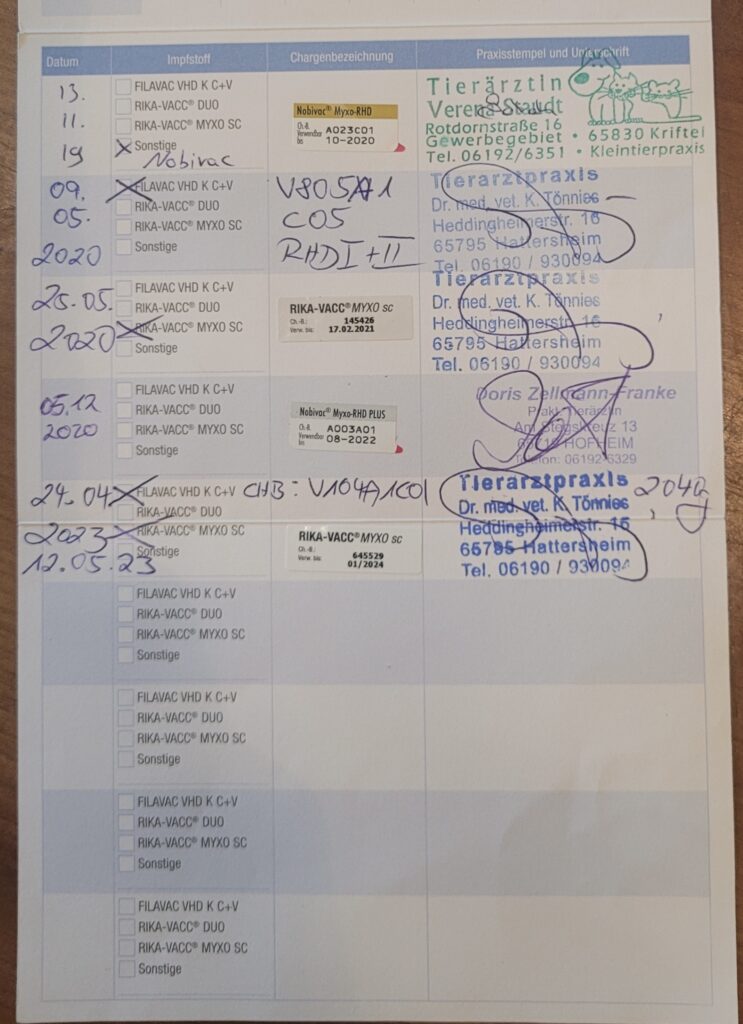 Datum Impfstoff Chargenbezeichnung Praxisstempel und Unterschrift
13.
11.
19
FILAVAC VHD K C+V
RIKA-VACC® DUO
RIKA-VACC® MYXO SC
Sonstige
Nobivac
Nobivac® Myxo-RHD
Ch.-B.: A023C01
Verwendbar bis 10-2020
Tierärztin
Verena Staudt
Rotdornstraße 16
Gewerbegebiet • 65830 Kriftel
Tel. 06192/6351 • Kleintierpraxis
09.
05.
2020
FILAVAC VHD K C+V
RIKA-VACC® DUO
RIKA-VACC® MYXO SC
Sonstige
V805A1
C05
RHD I + II
Tierarztpraxis
Dr. med. vet. K. Tönnies
Heddingheimerstr. 16
65795 Hattersheim
Tel. 06190 / 930094
25.05.
2020
FILAVAC VHD K C+V
RIKA-VACC® DUO
RIKA-VACC® MYXO SC
Sonstige
RIKA-VACC® MYXO SC
Ch.-B.: 145426
Verw. bis: 17.02.2021
Tierarztpraxis
Dr. med. vet. K. Tönnies
Heddingheimerstr. 16
65795 Hattersheim
Tel. 06190 / 930094
05.12
2020
FILAVAC VHD K C+V
RIKA-VACC® DUO
RIKA-VACC® MYXO SC
Sonstige
Nobivac® Myxo-RHD PLUS
Ch.-B.: A003A01
Verwendbar bis 08-2022
Doris Zellmann-Franke
Prakt. Tierärztin
13
HOFHEIM
24.04
2023
12.05.23
FILAVAC VHD K C+V
RIKA-VACC® DUO
RIKA-VACC® MYXO SC
Sonstige
CHB: V104A1C01
RIKA-VACC® MYXO SC
Ch.-B.: 645529
Verw. bis: 01/2024
Tierarztpraxis
Dr. med. vet. K. Tönnies
Heddingheimerstr. 16
65795 Hattersheim
Tel. 06190 / 930094
2040g
FILAVAC VHD K C+V
RIKA-VACC® DUO
RIKA-VACC® MYXO SC
Sonstige
FILAVAC VHD K C+V
RIKA-VACC® DUO
RIKA-VACC® MYXO SC
Sonstige
FILAVAC VHD K C+V
RIKA-VACC® DUO
RIKA-VACC® MYXO SC
Sonstige
FILAVAC VHD K C+V
RIKA-VACC® DUO
RIKA-VACC® MYXO SC
Sonstige